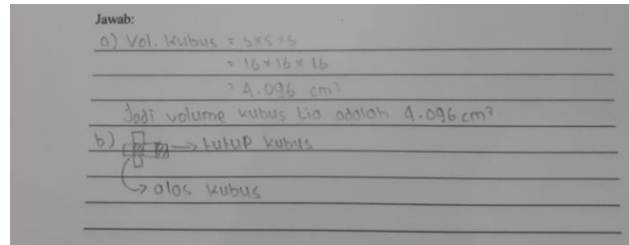 Jawab:
a) Vol. kubus = s×s×s
= 16 × 16 × 16
= 4.096 cm³
Jadi volume kubus Lia adalah 4.096 cm³
b) → tutup kubus
→ alas kubus